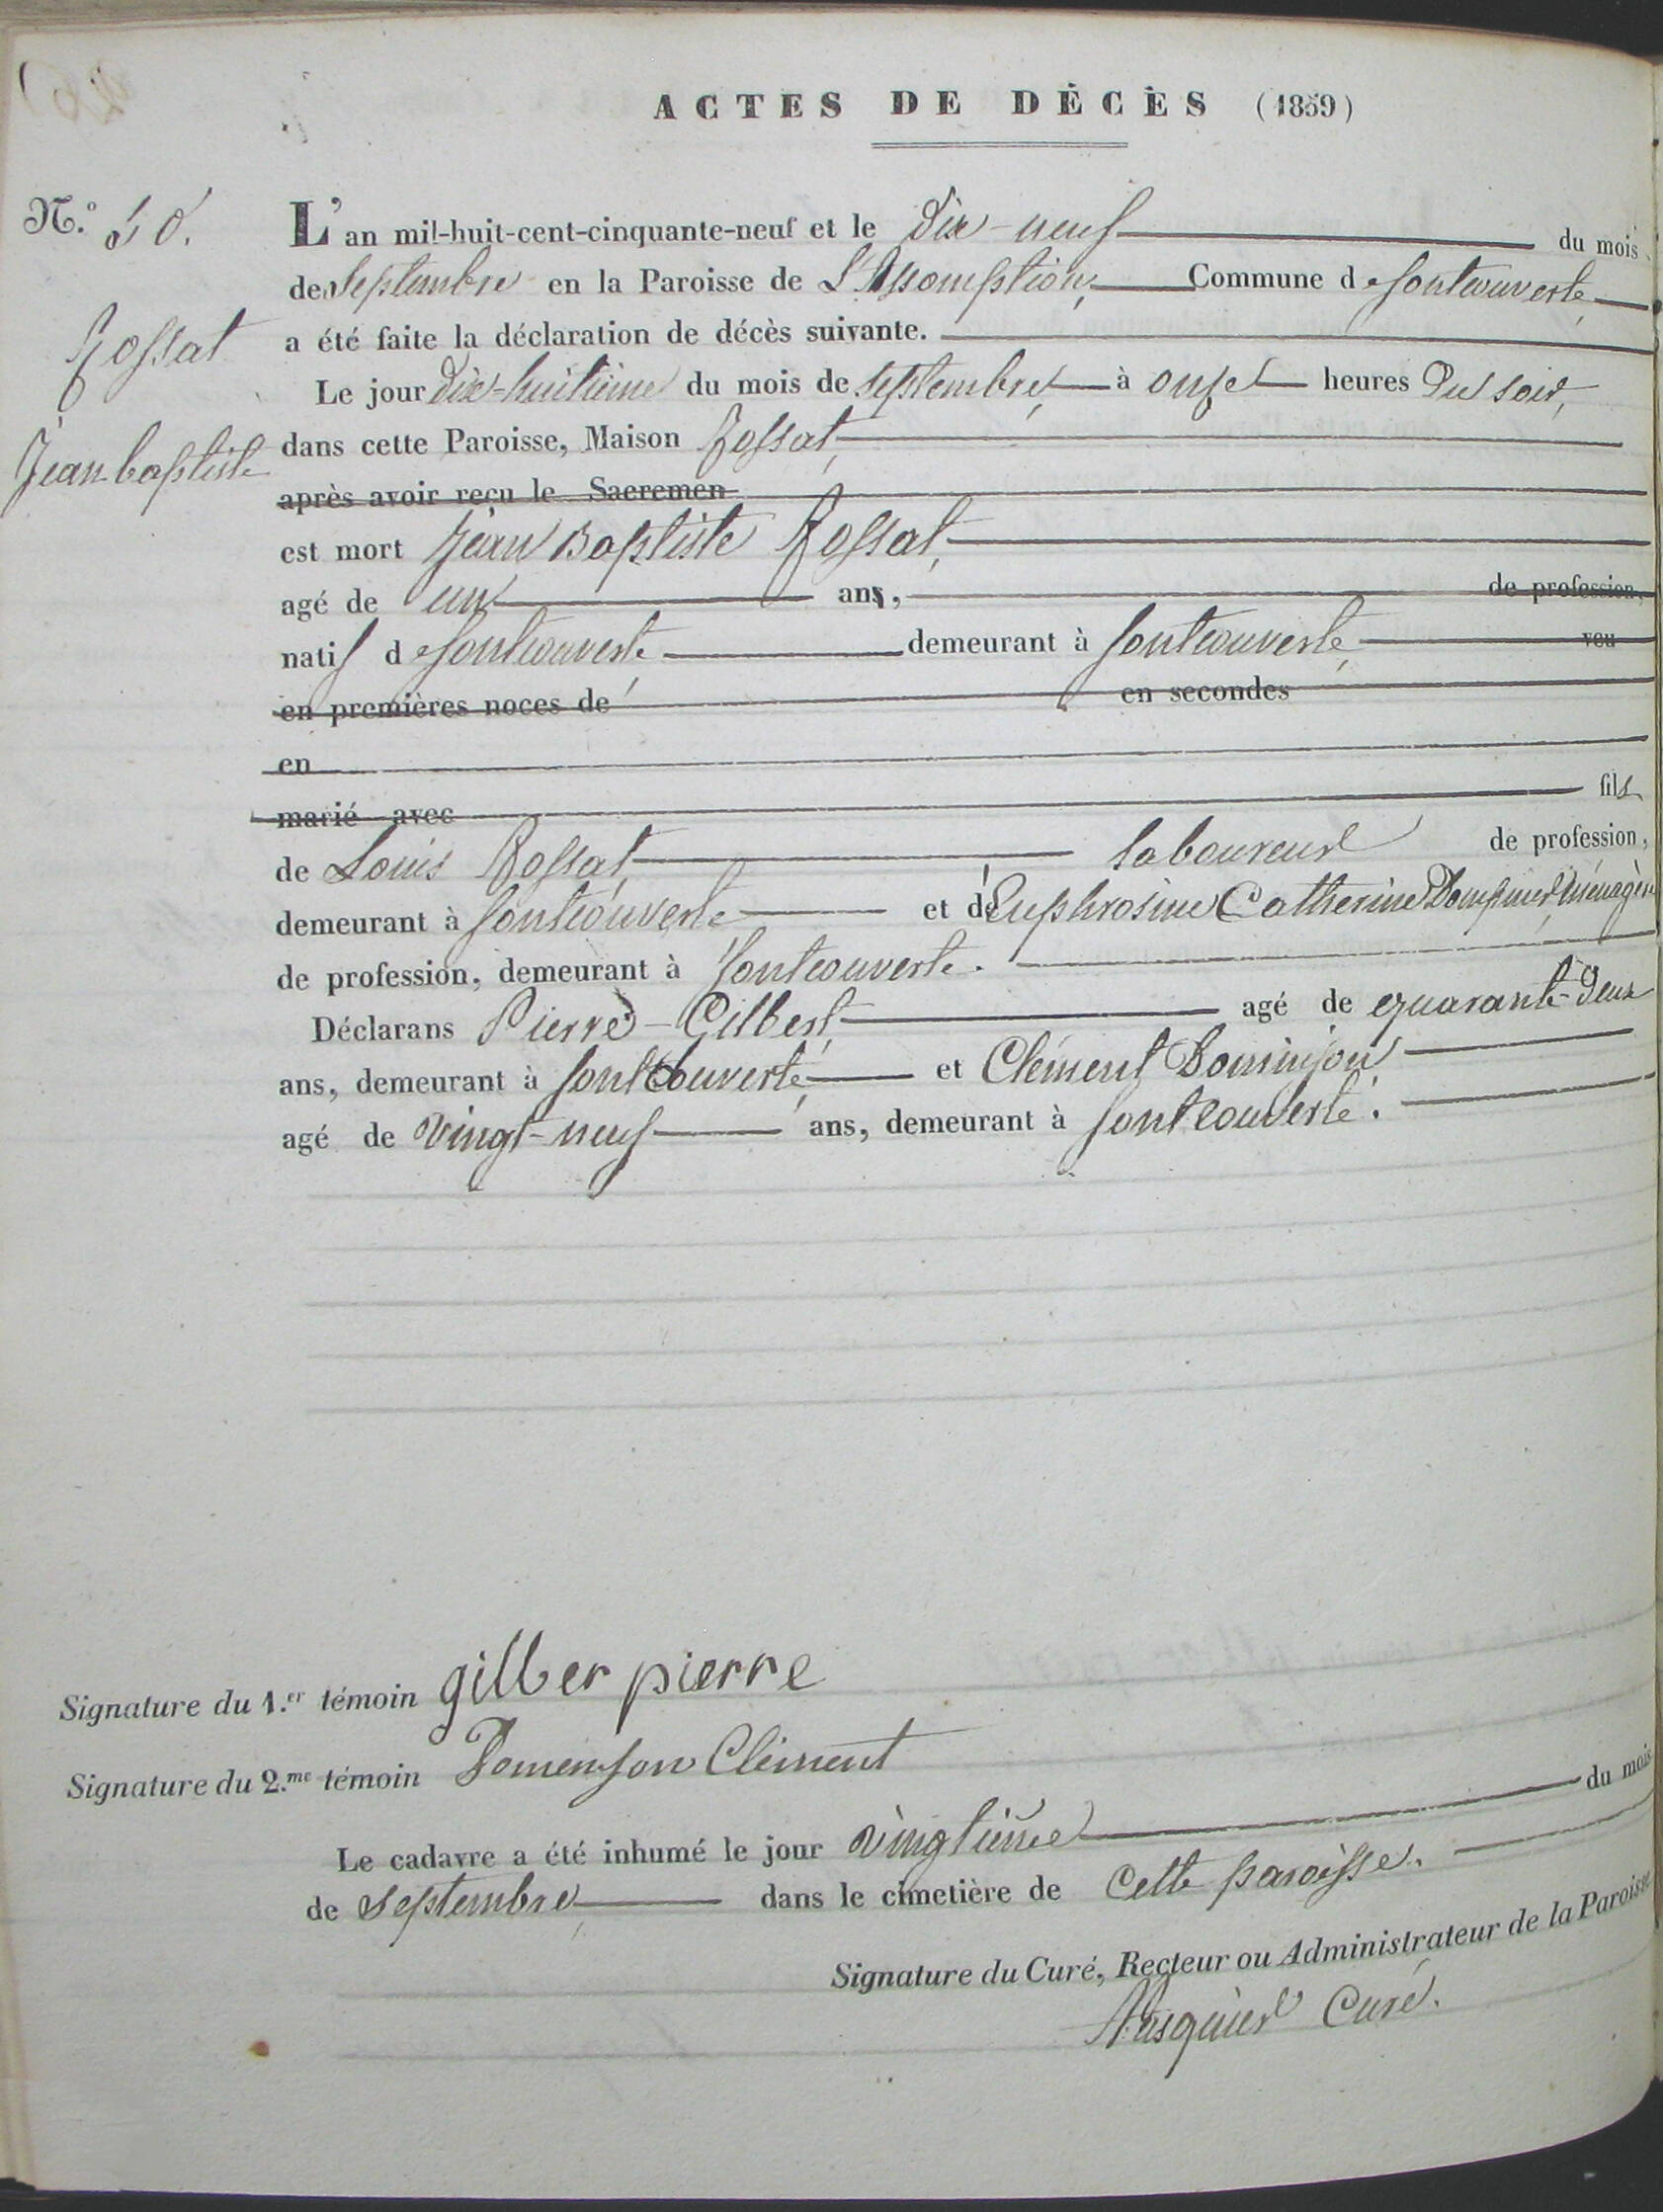 ACTES DE DÉCÈS (1859)
N.º 50.
L'an mil-huit-cent-cinquante-neuf et le dix-neuf du mois
de Septembre en la Paroisse de L'Assomption, Commune de fontcouverte
Rossat
a été faite la déclaration de décès suivante.
Le jour dix-huitième du mois de septembre, à onze heures du soir,
Jean baptiste
dans cette Paroisse, Maison Rossat,
après avoir reçu le Sacremen
est mort Jean Baptiste Rossat,
agé de un an,
de profession,
natif de fontcouverte, demeurant à fontcouverte,
veu
en premières noces de en secondes
en
marié avec fils
de Louis Rossat, laboureur de profession,
demeurant à fontcouverte et de Euphrosine Catherine ménagère
de profession, demeurant à fontcouverte.
Déclarans Pierre Gilbert, agé de quarante-deux
ans, demeurant à fontcouverte, et Clément Dominjon
agé de vingt-neuf ans, demeurant à fontcouverte.
Signature du 1.er témoin gilber pierre
Signature du 2.me témoin Domenjon Clément
Le cadavre a été inhumé le jour vingtième du mois
de septembre, dans le cimetière de cette paroisse.
Signature du Curé, Recteur ou Administrateur de la Paroisse
Curé.